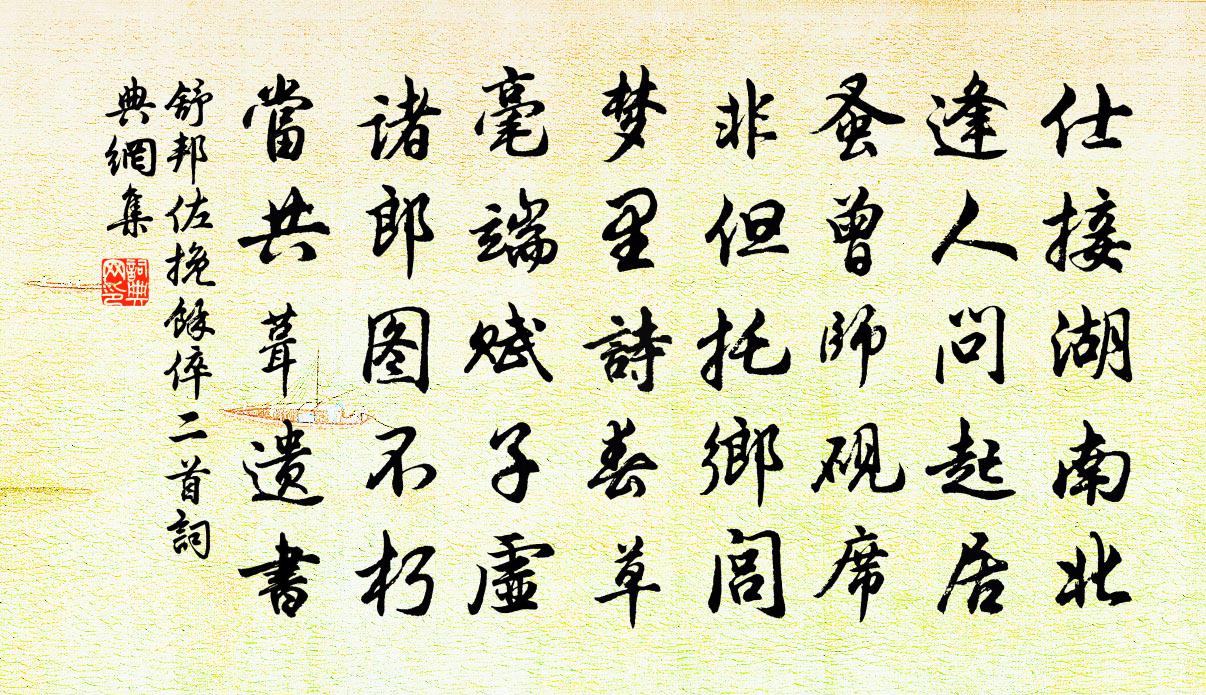 仕接湖南北
逢人问起居
蚤曾师砚席
非但托鄉闾
梦里詩春草
毫端赋子虚
诸郎图不朽
當共葺遗書
舒邦佐挽餘倅二首詞
典網集
詞典网印